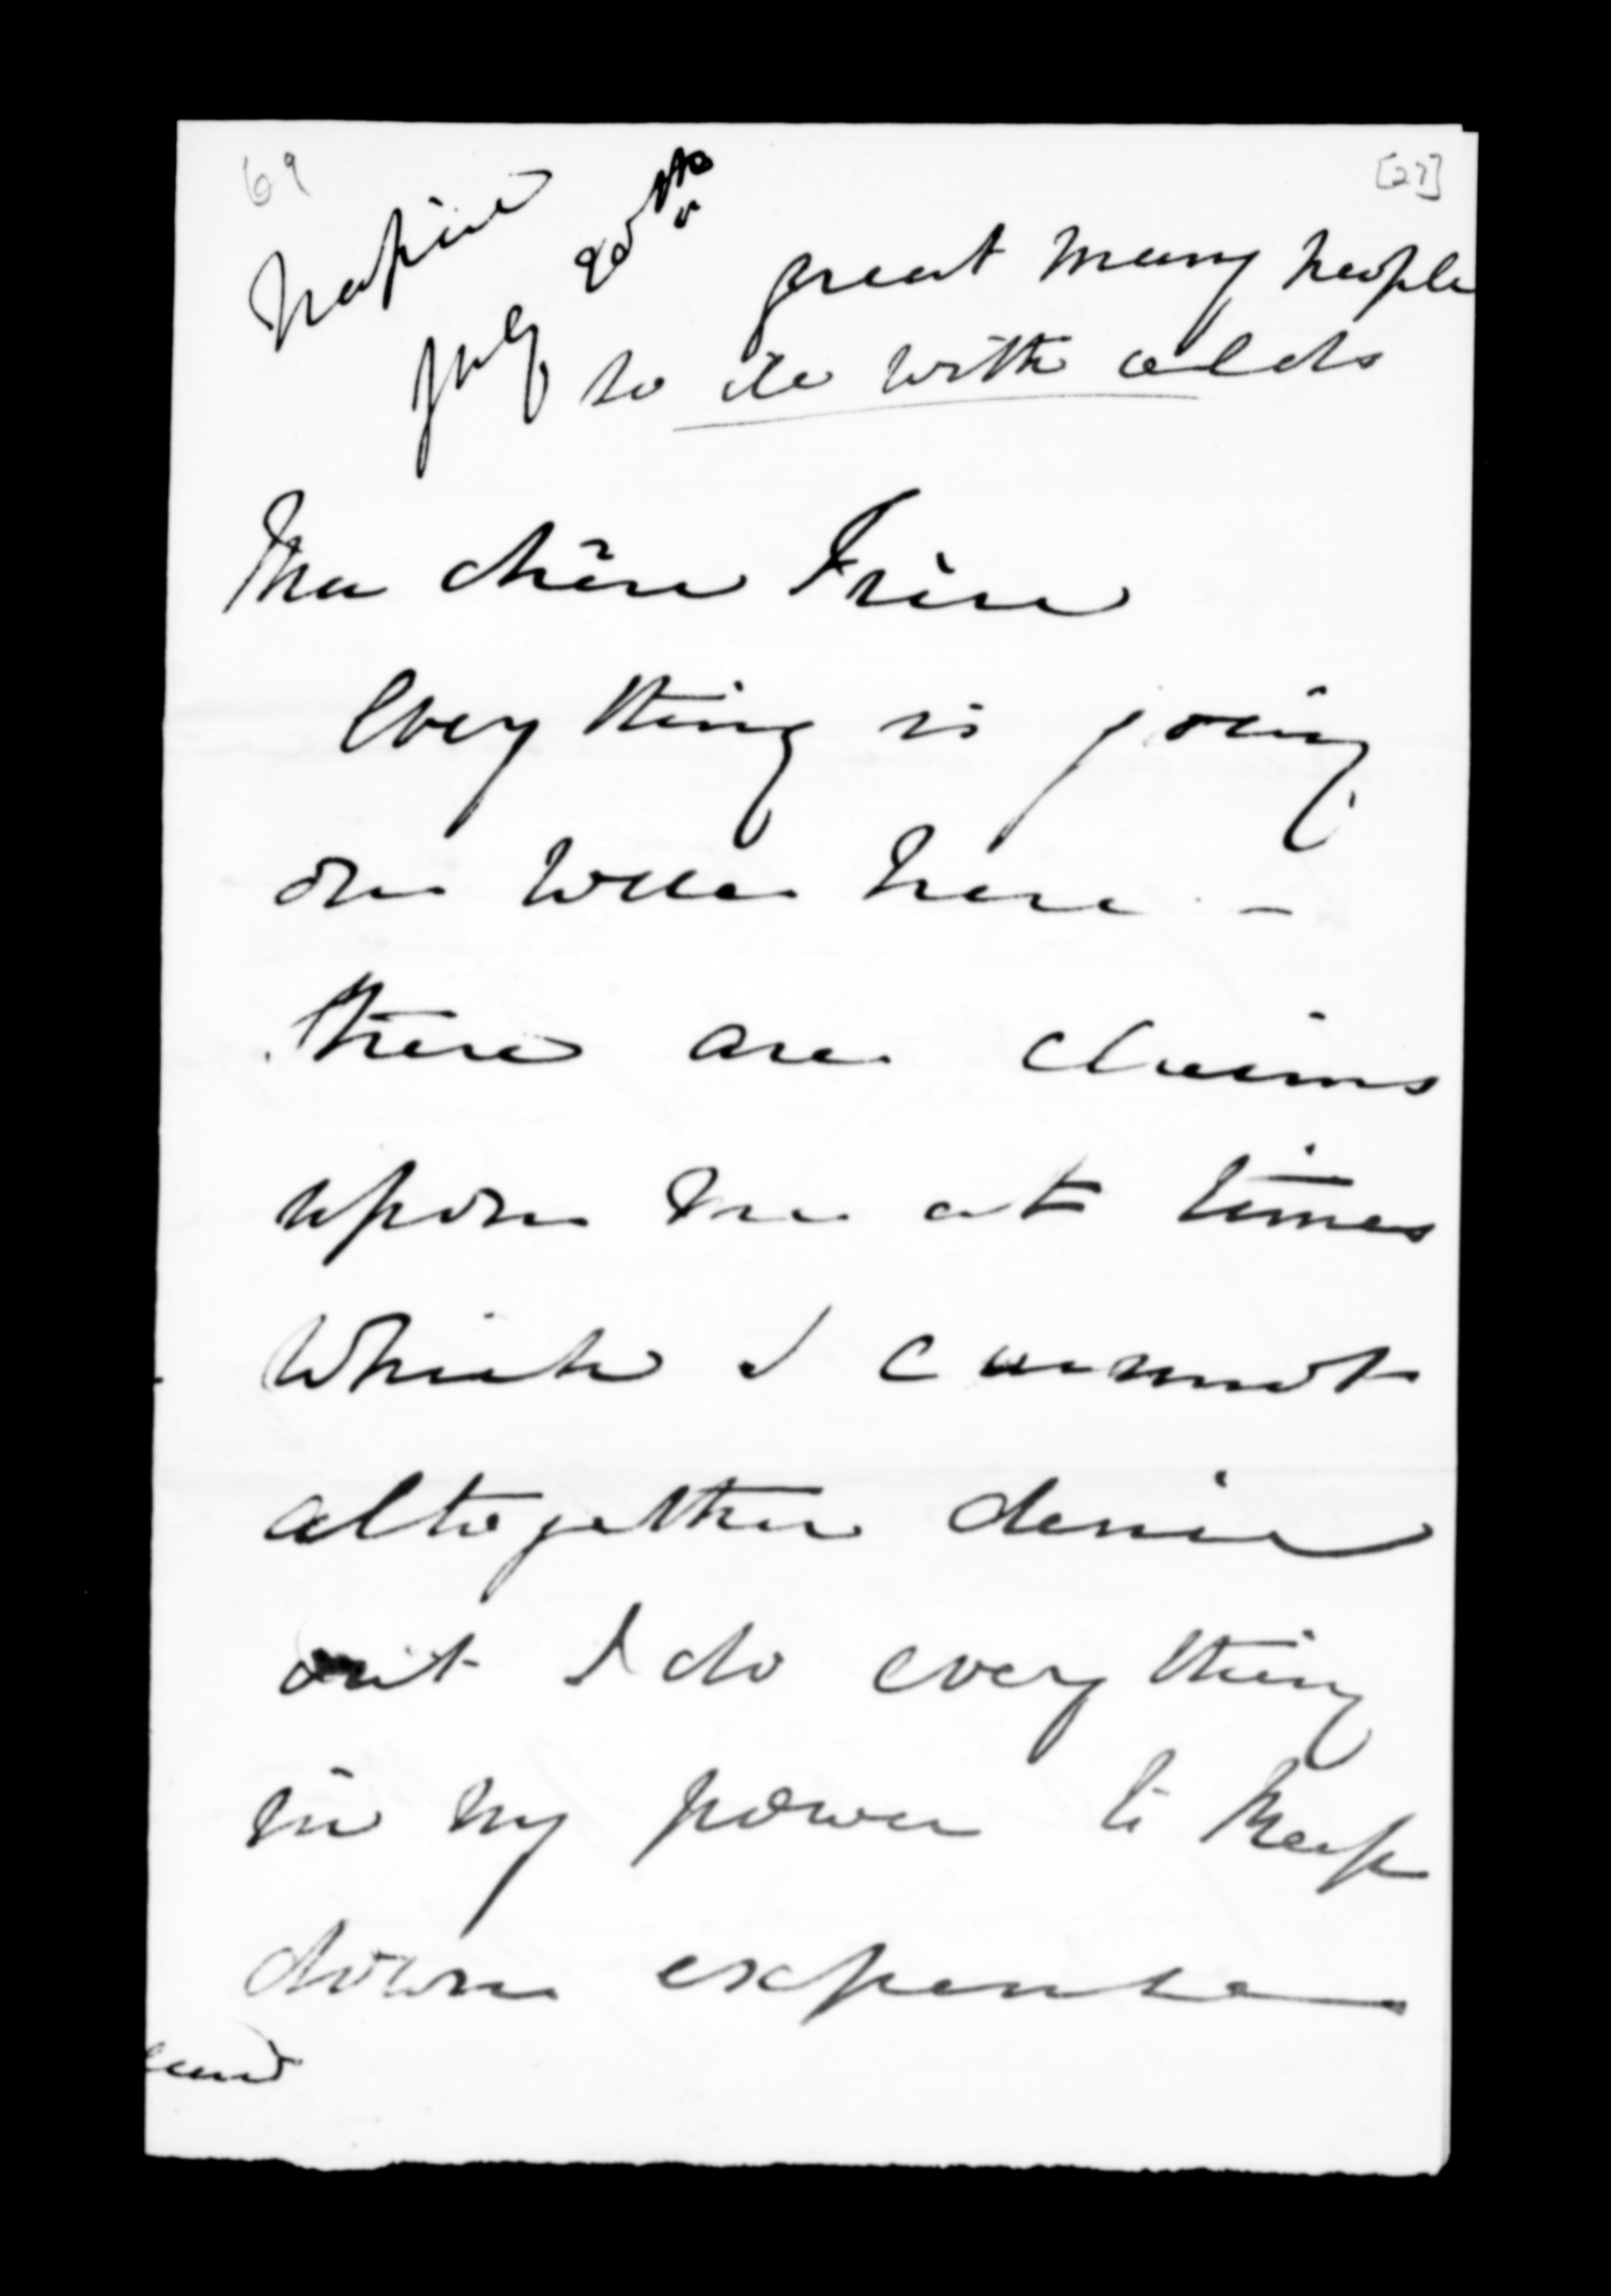 69
[27]
Napier
July 20th
great many people
so ile with colds
Ma chère Frère
Every thing is going
on well here -
there are claims
upon me at times
which I cannot
altogether denie
out I do every thing
in my power to keep
down expense